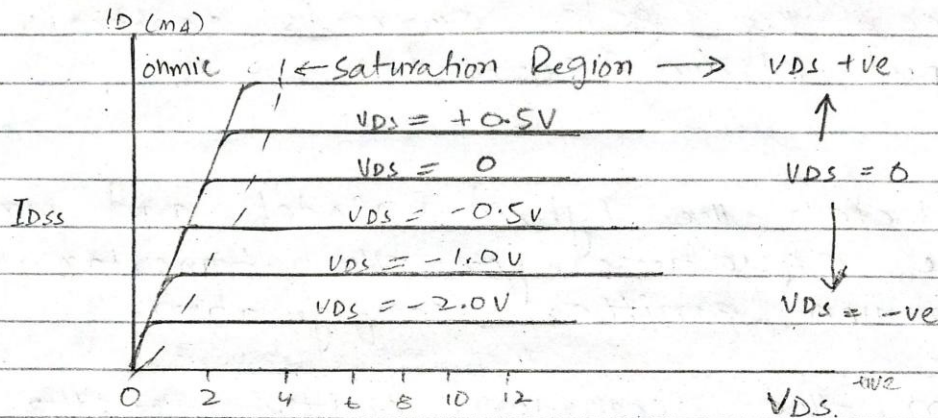 ID (mA)
ohmic ← Saturation Region → VDS +ve
VDS = +0.5V
VDS = 0 VDS = 0
IDSS VDS = -0.5V
VDS = -1.0V
VDS = -2.0V VDS = -ve
0 2 4 6 8 10 12 VDS